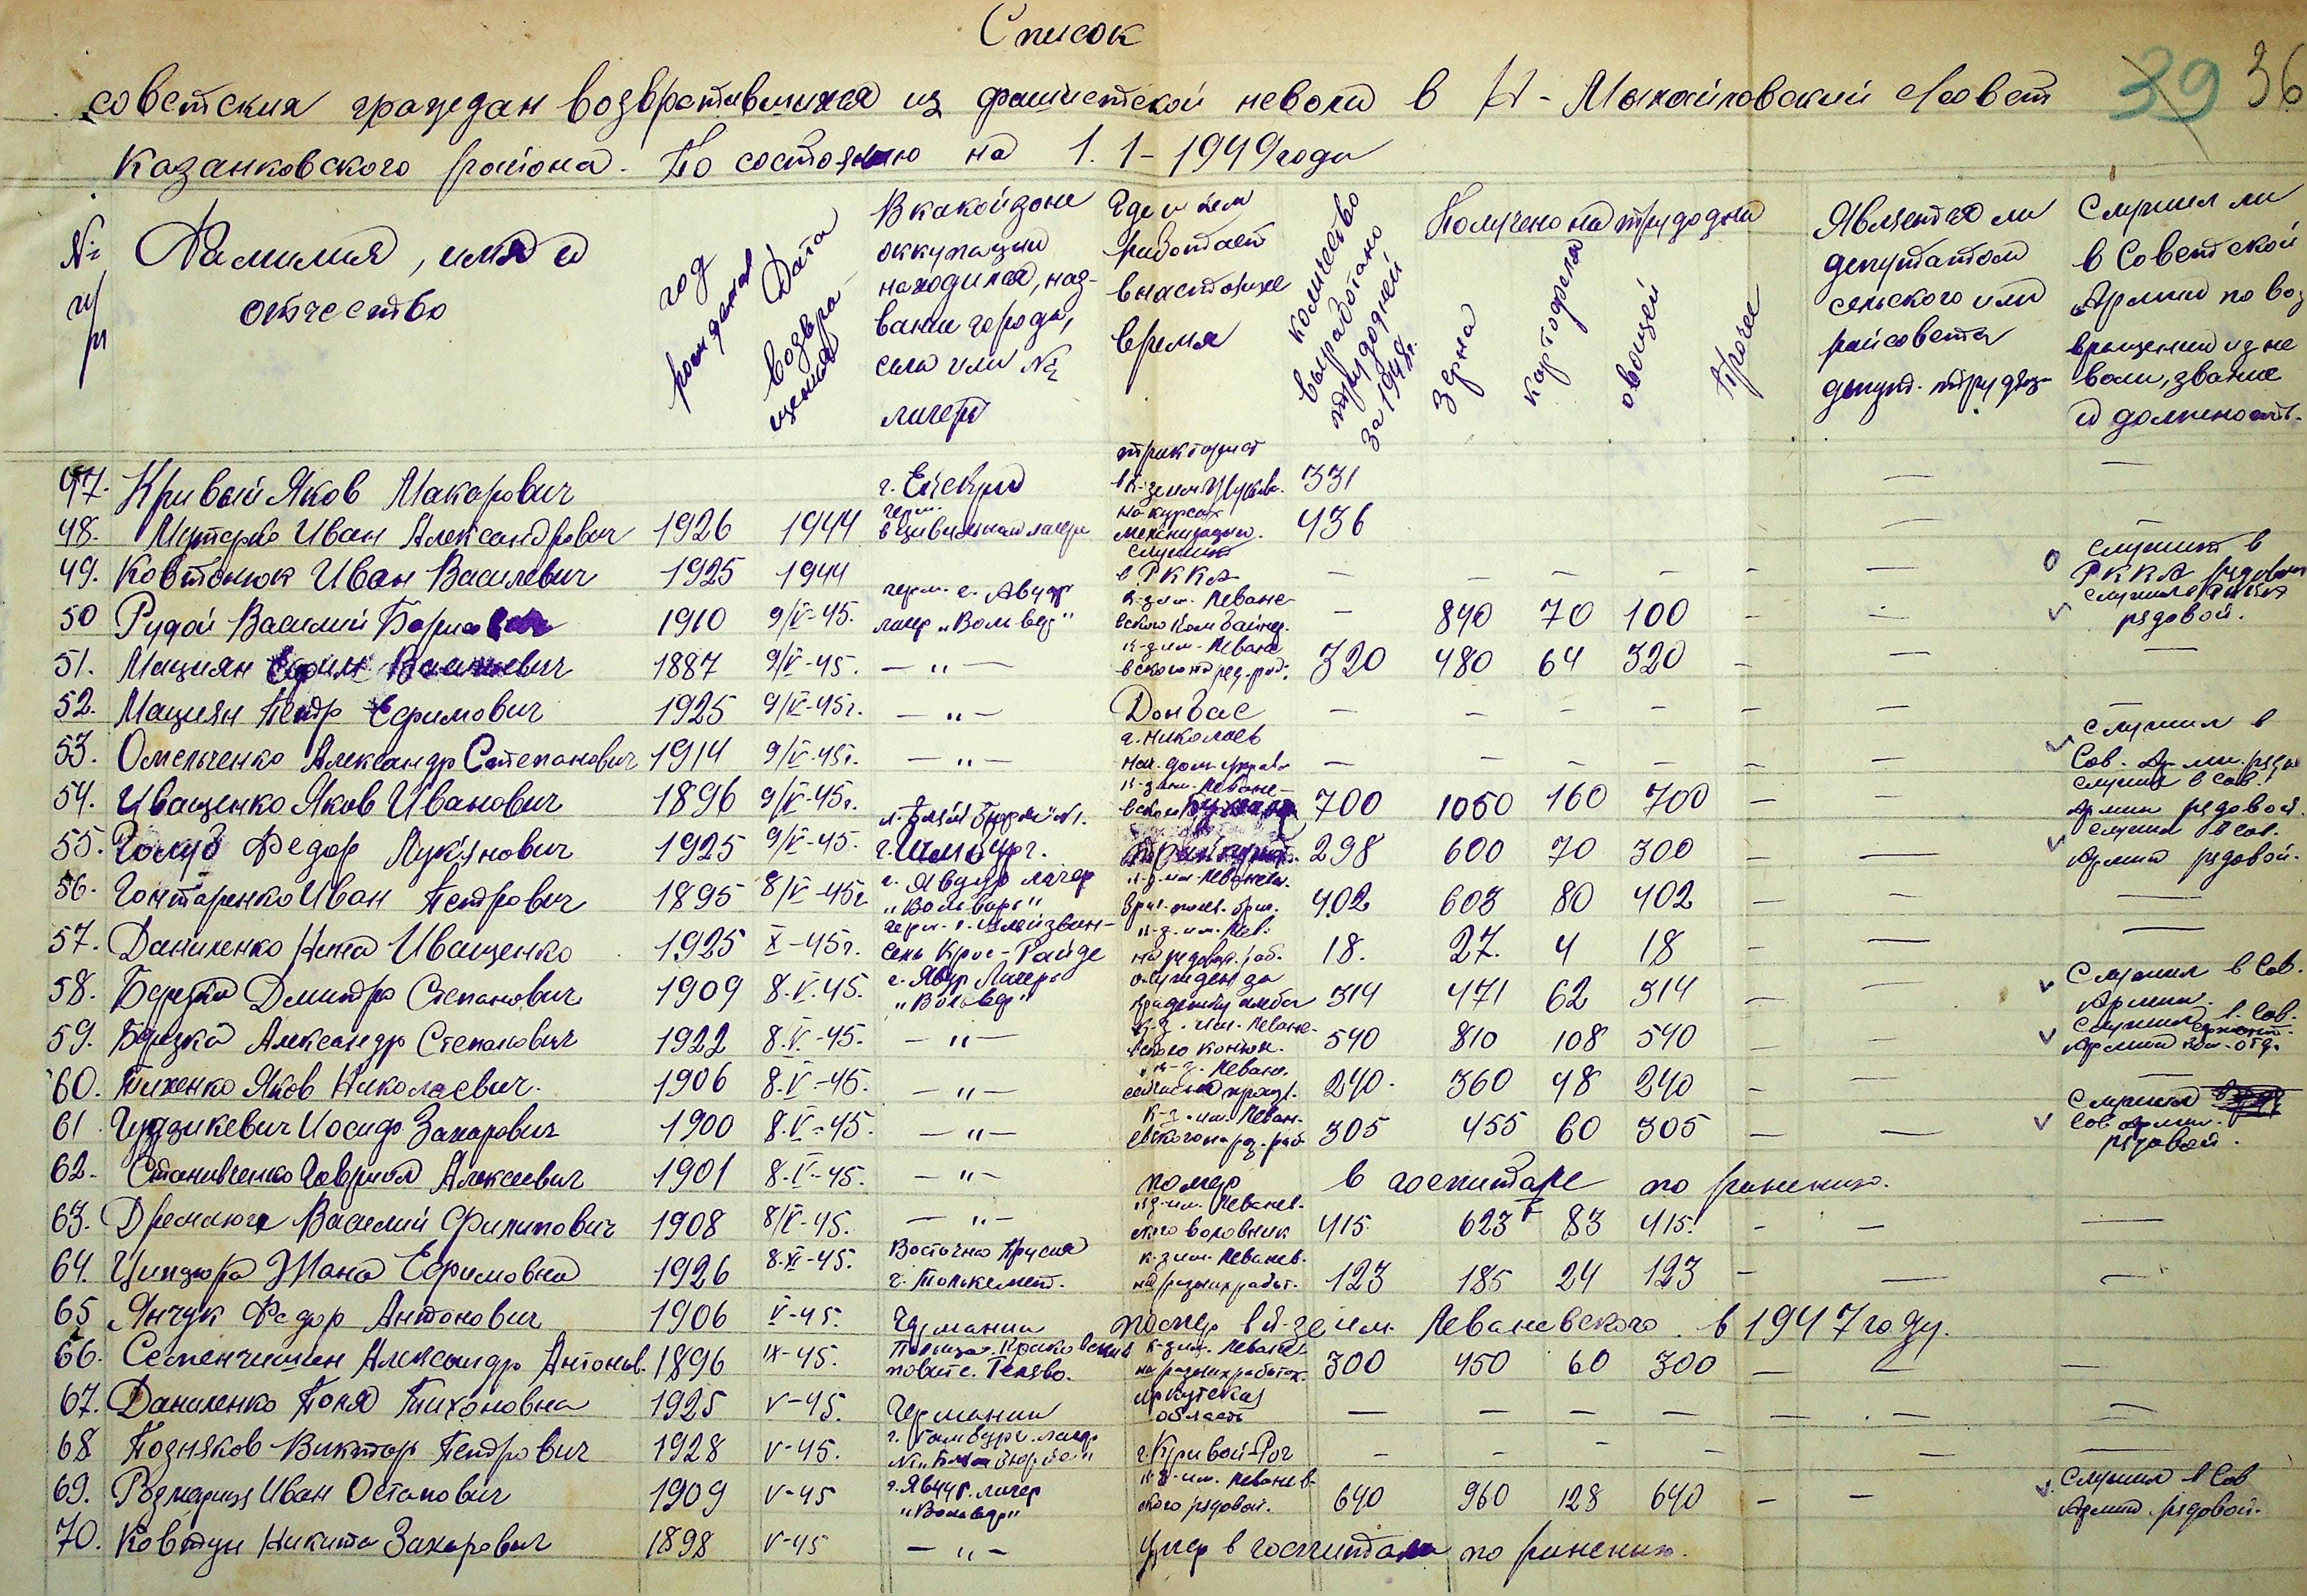 Список
39 36
советских граждан возвратившихся из фашистской неволи в Н-Михайловский с/совет
Казанковского района. По состоянию на 1.1-1949 года
№ п/п Фамилия, имя и отчество год рождения Дата возвращения В какой зоне оккупации находился, название города, села или № лагеря Где и кем работает в настоящее время количество выработано трудодней за 1948г. Получено на трудодни зерна картофеля овощей Прочее Является ли депутатом сельского или райсовета депут. трудящ. Служил ли в Советской Армии по возвращении из неволи, звание и должность.
47. Кривый Яков Макарович г. тракторист в к-зе им. 331 — —
48. Иван Александрович 1926 1944 герм. в цивильном лагере на курсах механизации. 436 — —
49. Ковтонюк Иван Василевич 1925 1944 служит в РККА — — — — — — служит в РККА рядовой
50 Рудой Василий 1910 9/V-45. герм. г. лагер к-з им. Леваневского комбайнер. — 840 70 100 — — служил рядовой.
51. Мациян 1887 9/V-45. — " — к-з им. Леваневского на ряд. раб. 320 480 64 320 — — —
52. Мациян Петр Ефимович 1925 9/V-45г. — " — Донбас — — — — — — —
53. Омельченко Александр Степанович 1914 9/V-45г. — " — г. Николаев нач. дом. управл — — — — — — Служил в Сов. Арми. рядов
54. Иващенко Яков Иванович 1896 9/V-45г. к-з им. Леваневском 700 1050 160 700 — — служил в Сов. Армии рядовой.
55. Голуб Федор Лукянович 1925 9/V-45. г. 298 600 70 300 — — служил в Сов. Армии рядовой.
56. Гонтаренко Иван Петрович 1895 8/V-45г г. лагер к-з им. Леванев. бриг. полев. бриг. 402 603 80 402 — — —
57. Даниленко Нина Иващенко 1925 X-45г. герм. к-з. им. Лев. на рядов. раб. 18. 27. 4 18 — — —
58. Дмитро Степанович 1909 8.V.45. г. Явур Лагерь осужден за 314 471 62 314 — — Служил в Сов. Армии.
59. Александр Степанович 1922 8.V-45. — " — к-з. им. Леваневского конюх. 540 810 108 540 — — Служил в Сов. Армии сержант. ком. отд.
60. Тихенко Яков Николаевич. 1906 8.V-45. — " — к-з. Леван. 240. 360 48 240 — — —
61 Гудзикевич Иосиф Захарович 1900 8.V-45. — " — к-з. им. Леваневского на ряд. раб 305 455 60 305 — — Служил Сов. армии. рядовой.
62. Станивченко Гаврил Алексеевич 1901 8.V-45. — " — помер в госпитале по ранению.
63. Дремлюга Василий Филипович 1908 8/V-45. — " — к-з им. Леваневского воловник 415 623 83 415. — — —
64. Ципзюра Жана Ефимовна 1926 8.XI-45. Восточна Прусия г. Толькемет. к-з им. Леванев. на разных работ. 123 185 24 123 — — —
65 Янчук Федор Антонович 1906 V-45. Германии помер в к-зе им. Леваневского в 1947 году.
66. Семенчишен Александр Антонов. 1896 IX-45. Польща. Краковский повит с. к-з им. Леванев. на разных работах. 300 450 60 300 — — —
67. Даниленко Поля Тихоновна 1925 V-45. Германии Иркутская область — — — — — — —
68 Позняков Виктор Петрович 1928 V-45. г. Гамбург. лагерь г. Кривой-Рог — — — — — —
69. Иван Остапович 1909 V-45 г. Явур. лагер к-з им. Леваневского рядовой. 640 960 128 640 — — Служил в Сов Армии рядовой.
70. Ковтун Никита Захарович 1898 V-45 — " — умер в госпитале по ранению.